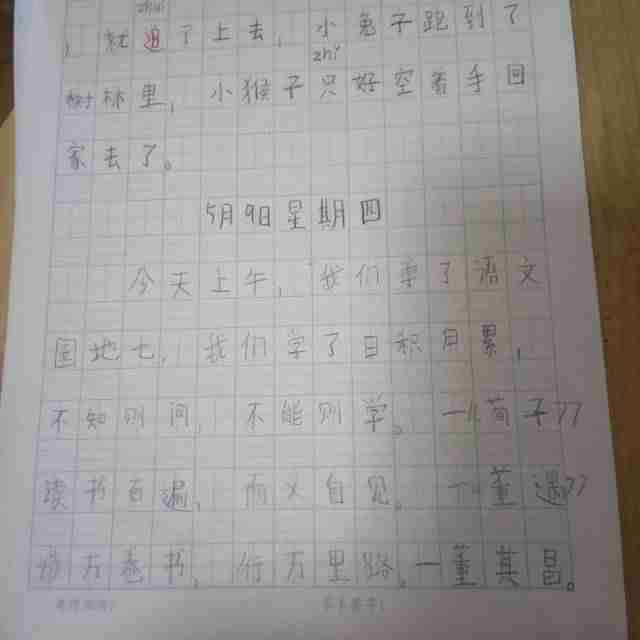 zhuī
就追了上去，小兔子跑到了
zhǐ
树林里，小猴子只好空着手回
家去了。
5月9日星期四
今天上午，我们学了语文
园地七，我们学了日积月累，
不知则问，不能则学。一《荀子》
读书百遍，而义自见。一《董遇》
读万卷书，行万里路。一董其昌。